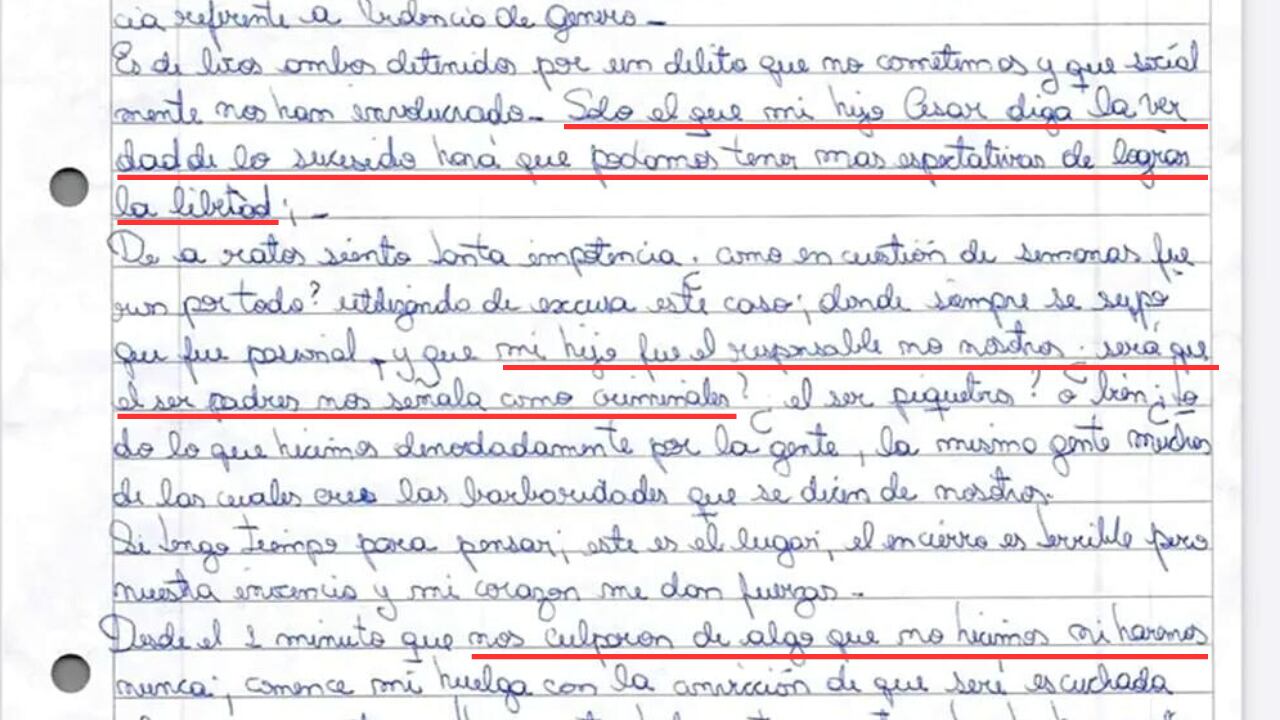 cia referente a Violencia de Genero -
Es de locos ambos detenidos por un delito que no cometimos y que social
mente nos han involucrado - Solo el que mi hijo Cesar diga la ver
dad de lo sucesido hará que podamos tener mas espectativas de lograr
la libertad; -
De a ratos siento tanta impotencia. como en cuestión de semanas fue
ron por todo? utilizando de excusa este caso; donde siempre se supo
que fue pasional, y que mi hijo fue el responsable no nosotros. será que
el ser padres nos señala como criminales? el ser piquetro? o bien; to
do lo que hicimos denodadamente por la gente, la misma gente muchos
de las cuales cree las barbaridades que se dicen de nosotros.
Si tengo tiempo para pensar; este es el lugar, el encierro es terrible pero
nuestra inocencia y mi corazon me dan fuerzas -
Desde el 1 minuto que nos culparon de algo que no hicimos ni haremos
nunca; comence mi huelga con la de que seré escuchada